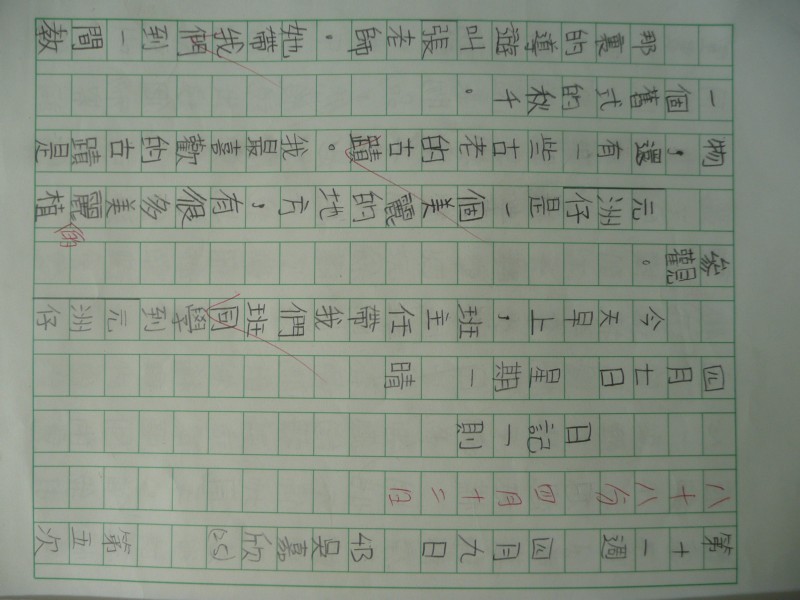 第十一週 四月九日 4B 吳嘉欣(25) 第五次
八十八分 四月十二
日記一則
四月七日 星期一 晴
今天早上，班主任帶我們班同學到元洲仔
參觀。
元洲仔是一個美麗的地方，有很多美麗的植
物，還有一些古老的古蹟。我最喜歡的古蹟是
一個舊式的秋千。
那裏的導遊叫張老師。她帶我們到一間教